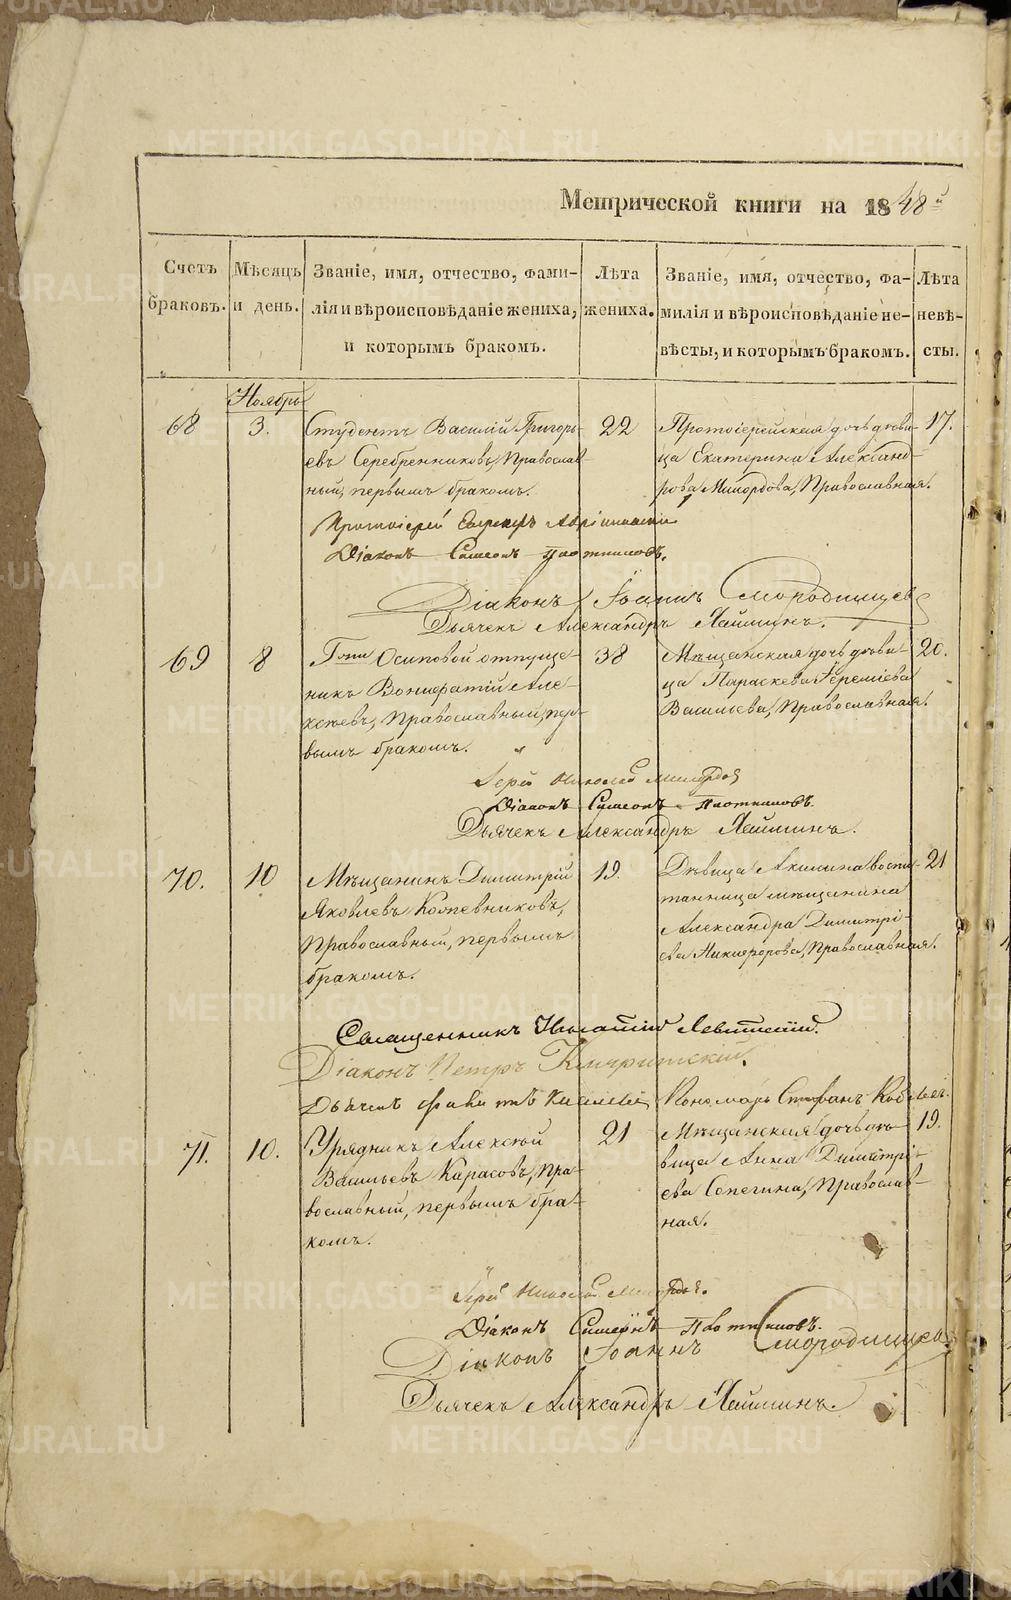 METRIKI.GASO-URAL.RU
Метрической книги на 1848й
Счетъ браковъ.
Мѣсяцъ и день.
Званіе, имя, отчество, фами-
лія и вѣроисповѣданіе жениха,
и которымъ бракомъ.
Лѣта жениха.
Званіе, имя, отчество, фа-
милія и вѣроисповѣданіе не-
вѣсты, и которымъ бракомъ.
Лѣта невѣ-
сты.
Ноябрь
68
3.
Студентъ Василій Григорь-
евъ Серебренниковъ, Православ-
ный, первымъ бракомъ.
22
Протоіерейская дочь дѣви-
ца Екатерина Александ-
рова Милордова, Православная.
17.
Протоіерей
Діаконъ Симеонъ Плотниковъ.
Діаконъ Іоаннъ Смородинцевъ
Дьячекъ Александръ
69
8
Гжи Осиповой отпуще-
никъ Вонифатій Але-
ксѣевъ, Православный, пер-
вымъ бракомъ.
38
Мѣщанская дочь дѣви-
ца Параскева Іереміева
Васильева, Православная.
20.
Іерей Николай Милордовъ
Діаконъ Симеонъ Плотниковъ.
Дьячекъ Александръ
70.
10
Мѣщанинъ Димитрій
Яковлевъ
Православный, первымъ
бракомъ.
19.
Дѣвица Акилина воспи-
танница мѣщанина
Александра Димитрі-
ева Никифорова, Православная.
21
Священникъ Игнатій Левитскій.
Діаконъ Петръ
Дьячекъ
Пономарь Стефанъ
71.
10.
Урядникъ Алексѣй
Васильевъ Карасовъ, Пра-
вославный, первымъ бра-
комъ.
21
Мѣщанская дочь дѣ-
вица Анна Димитрі-
ева Сопегина, Православ-
ная.
19.
Іерей Николай Милордовъ.
Діаконъ Симеонъ Плотниковъ.
Діаконъ Іоаннъ Смородинцевъ
Дьячекъ Александръ